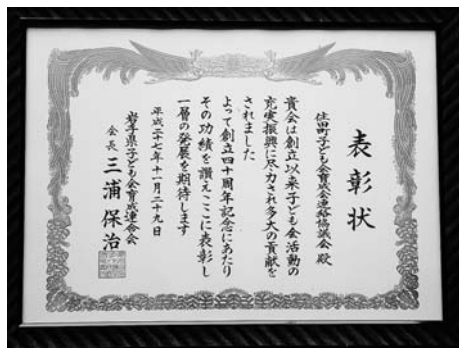 表彰状
住田町子ども会育成会連絡協議会 殿
貴会は創立以来子ども会活動の
充実振興に尽力され多大の貢献を
されました
よって創立四十周年記念にあたり
その功績を讃えここに表彰し
一層の発展を期待します
平成二十七年十一月二十九日
岩手県子ども会育成連合会
会長 三浦保治